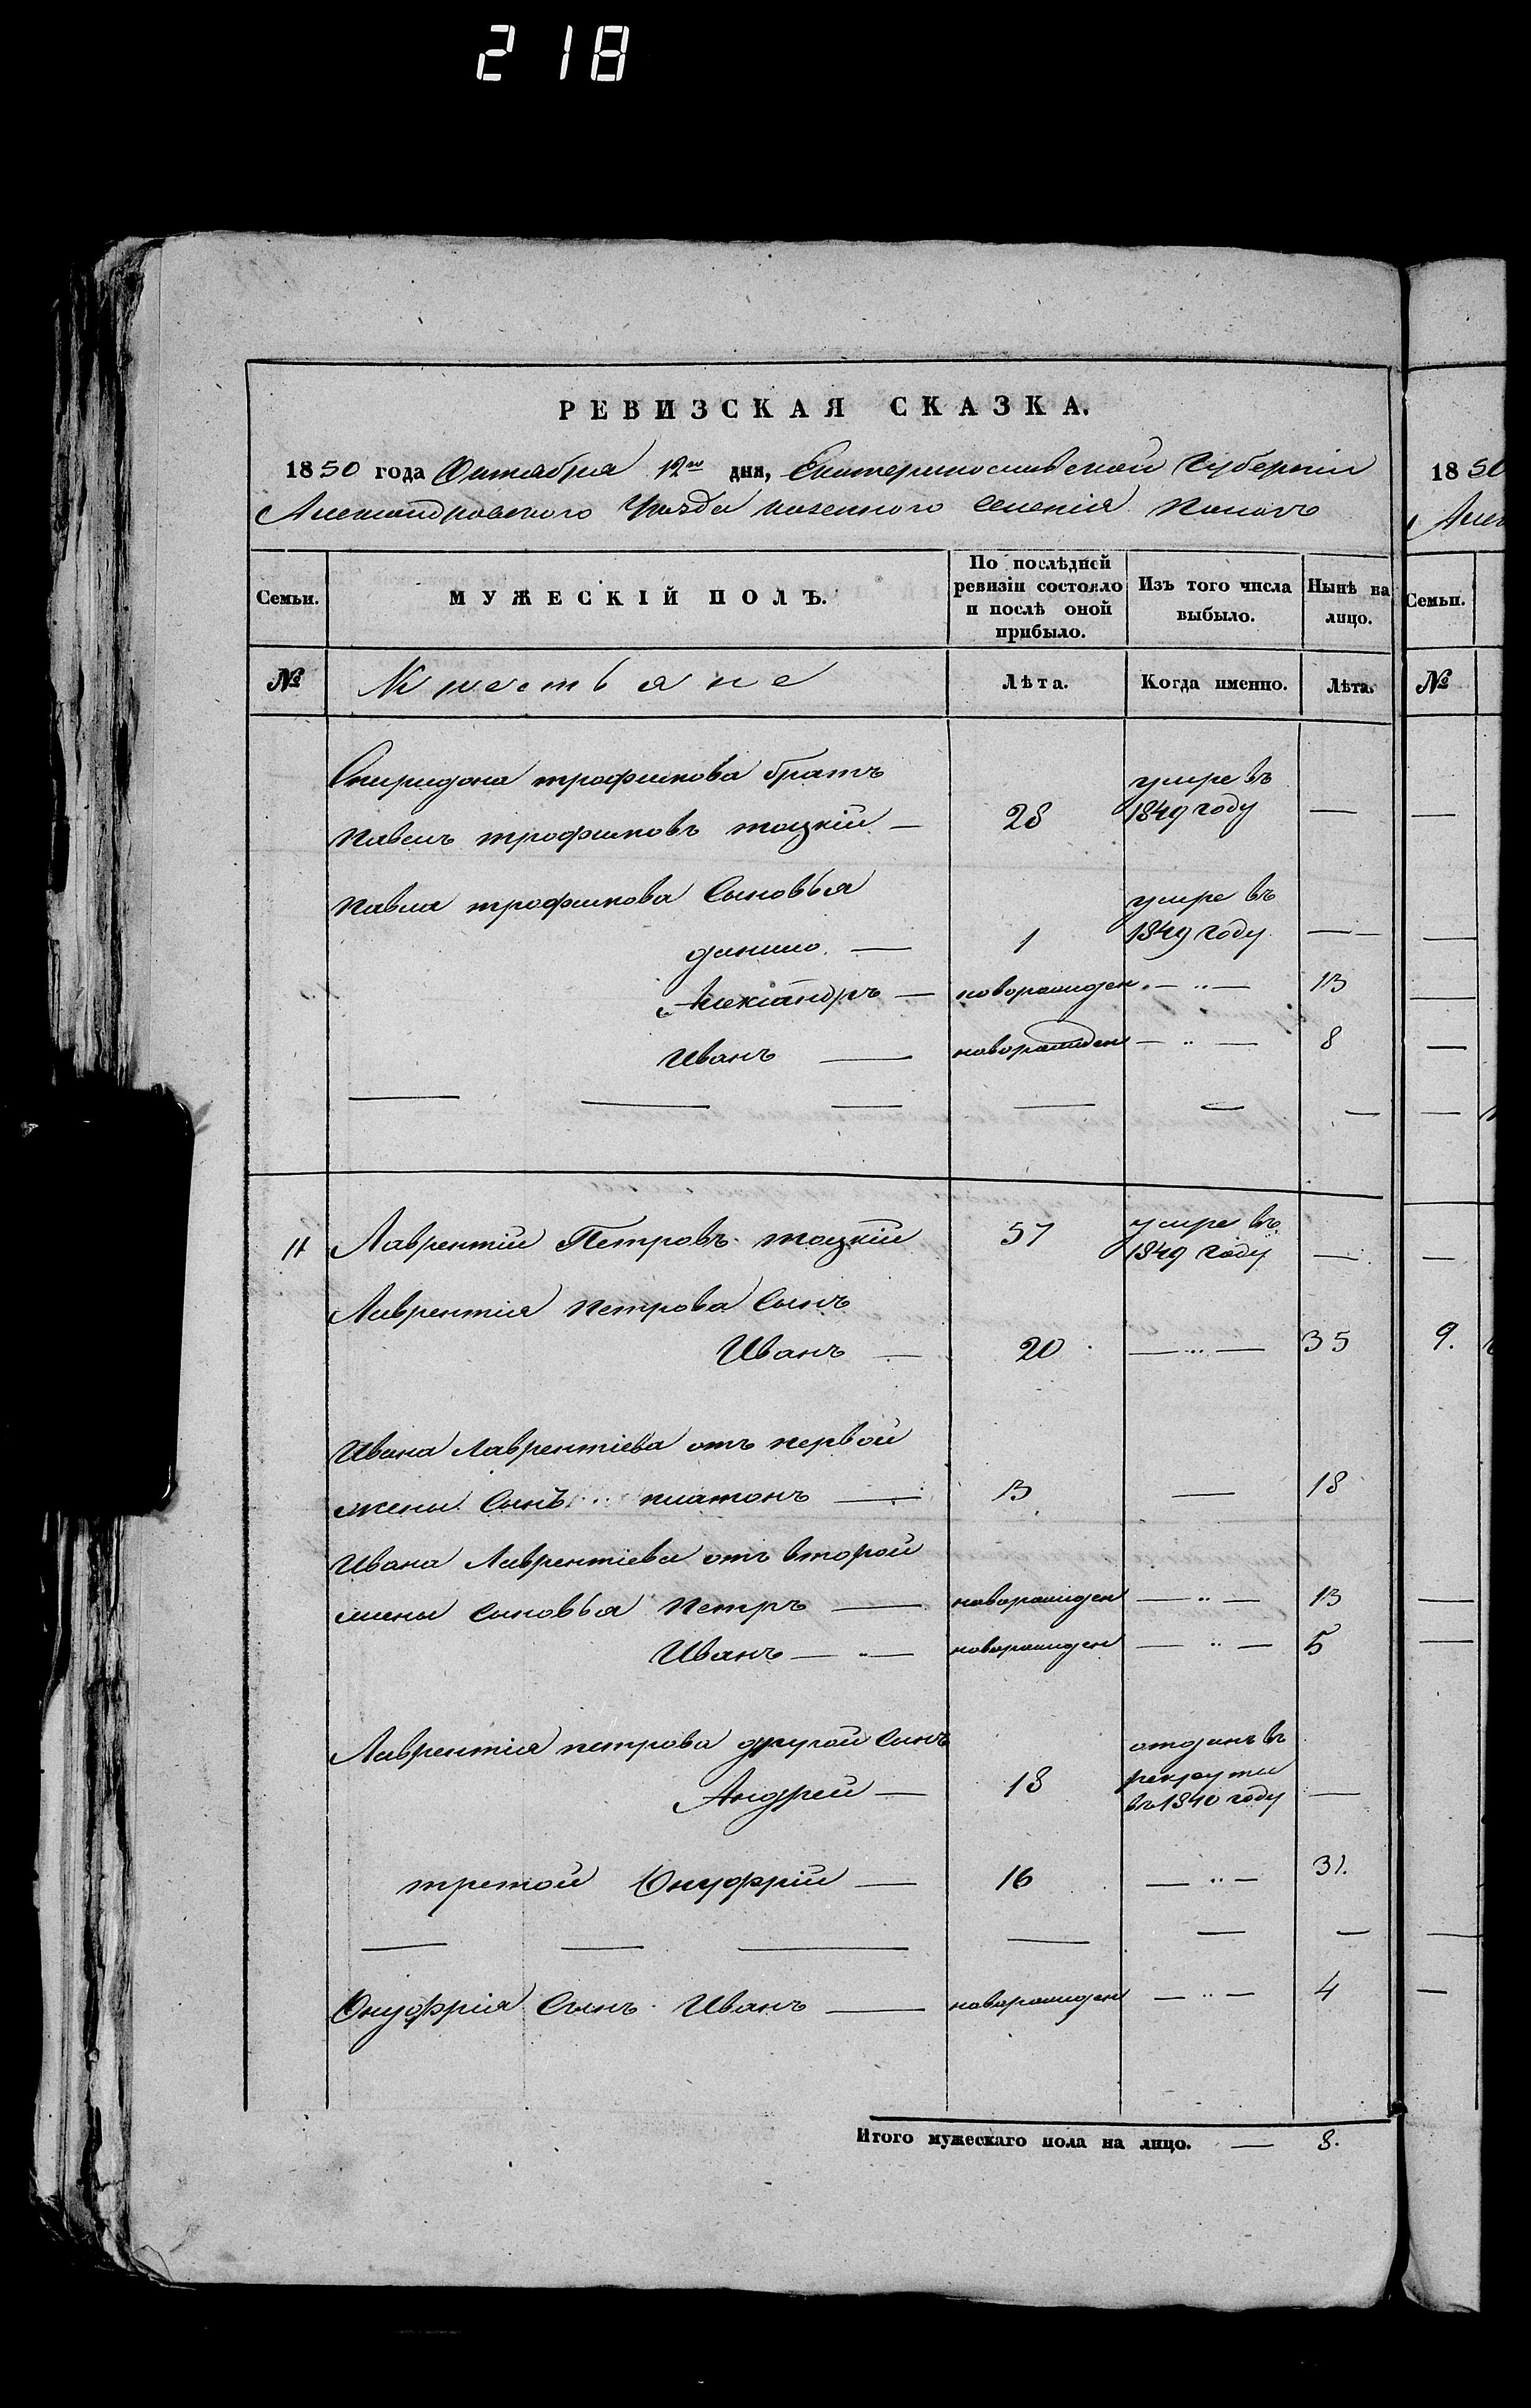 218
РЕВИЗСКАЯ СКАЗКА.
1850 года Октября 12го дня, Екатеринославской Губернии
Александровского Уезда казенного селения Попогъ
Семьи.
МУЖЕСКІЙ ПОЛЪ.
По послѣдней ревизіи состояло и послѣ оной прибыло.
Изъ того числа выбыло.
Нынѣ на лицо.
№ Крестьяне Лѣта. Когда именно. Лѣта.
Спиридона трофимова братъ умре въ
Павелъ трофимовъ тоцкій — 28 1849 году —
Павла трофимова Сыновья умре въ
данило. — 1 1849 году — —
Александръ — новорожден. — „ — 13
Иванъ — новорожден — „ — 8
— — — — — —
Лаврентій Петровъ тоцкій 57 умре въ
1849 году —
Лаврентія петрова Сынъ
Иванъ — 20 — „ — 35
Ивана Лаврентіева отъ первой
жены Сынъ платонъ — 3 — 18
Ивана Лаврентіева отъ второй
жены сыновья Петръ — новорожден — „ — 13
Иванъ — „ — новорожден — „ — 5
Лаврентія петрова другой сынъ отданъ в
Андрей — 18 рекруты
въ 1840 году —
третой Онуфрій — 16 — „ — 31.
— — — — — —
Онуфрія Сынъ Иванъ — новорожден — „ — 4
Итого мужескаго пола на лицо. — 8.
1850
Семьи.
№
9.